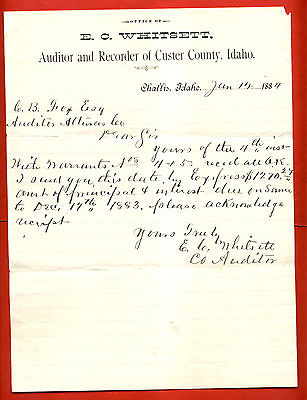 OFFICE OF
E. C. WHITSETT,
Auditor and Recorder of Custer County, Idaho.
Challis, Idaho, Jan 14 1884
C. B. Fox Esq
Auditor Alturas Co
Dear Sir
yours of the 4th inst
With Warrants Nos 4 & 5. recd all O.K.
I send you this date by Express $1270.
amt of principal & interest due on Same
to Dec. 17th 1883. please acknowledge
reciept
Yours Truly
E. C. Whitsett
Co Auditor